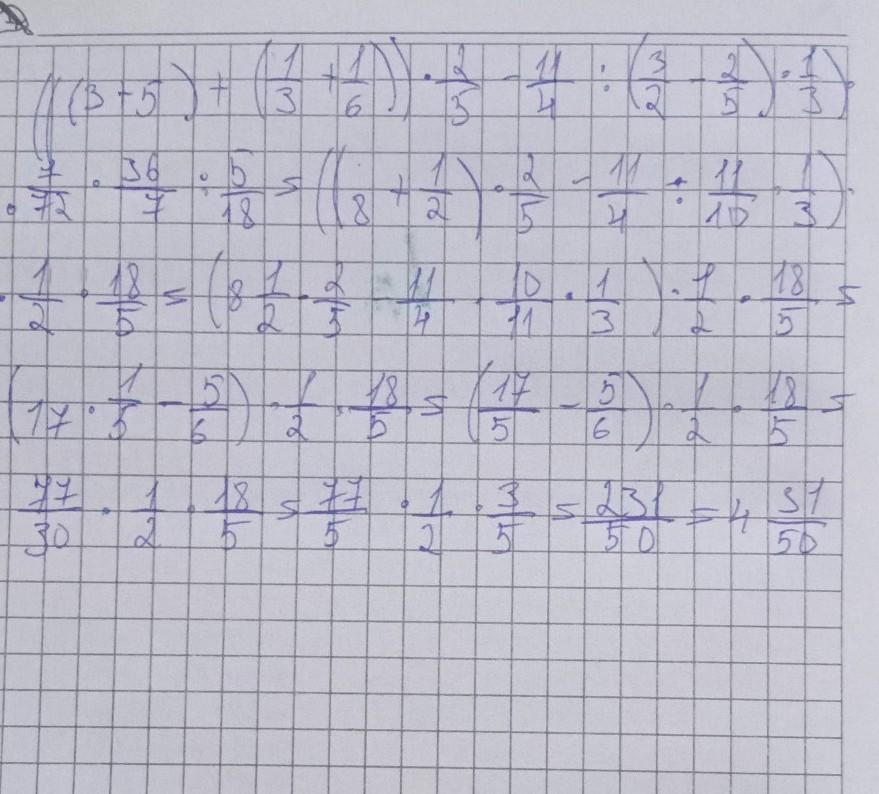 (((3+5)+(1/3+1/6))·2/5-11/4:(3/2-2/5)·1/3)·
·7/72·36/7:5/18=((8+1/2)·2/5-11/4:11/10·1/3)·
·1/2·18/5=(8 1/2·2/5-11/4·10/11·1/3)·1/2·18/5=
(17·1/5-5/6)·1/2·18/5=(17/5-5/6)·1/2·18/5=
77/30·1/2·18/5=77/5·1/2·3/5=231/50=4 31/50